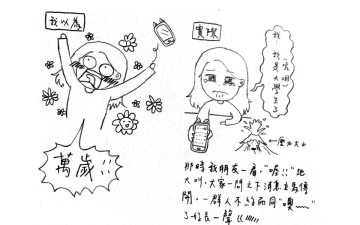 我以為
萬歲!!!
實際
(哽咽)
我…我是大學生了
←壓力大山
那時我朋友一看,"喔!!"地
大叫,大家一問之下消息立馬傳
開,一群人不約而同"噢~~~~"
了好長一聲!!!!!!!